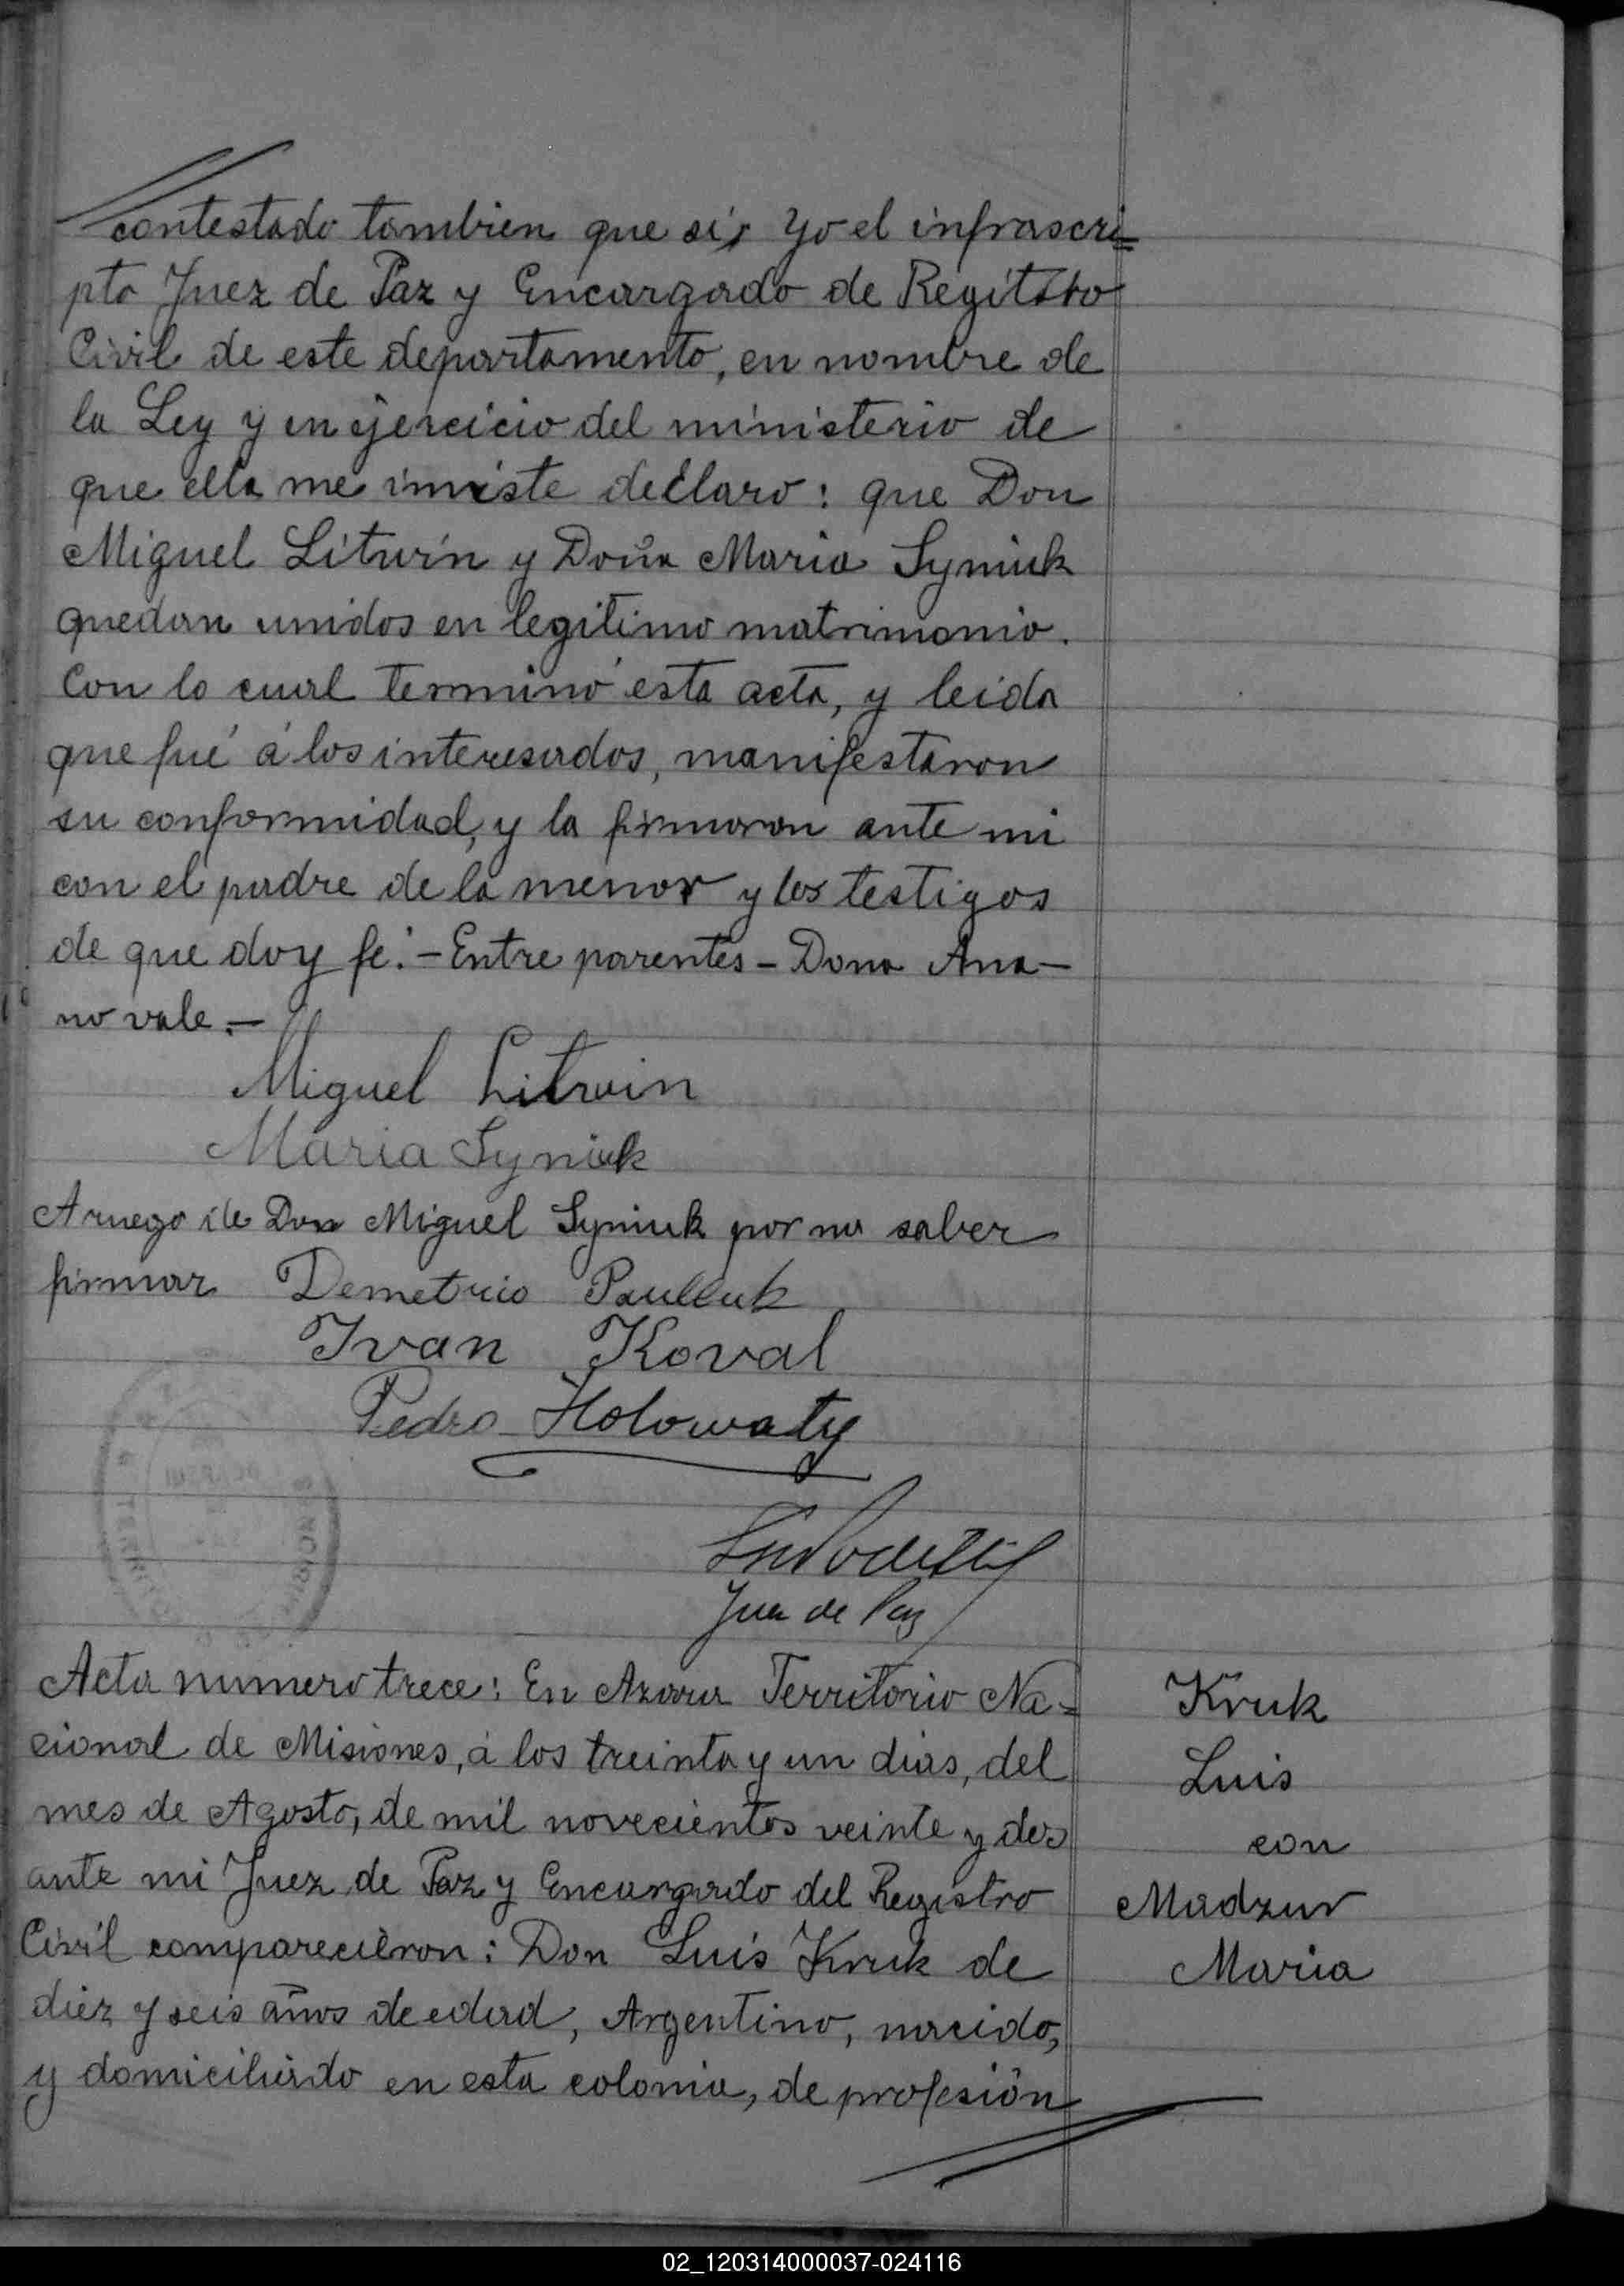 contestado tambien que si, Yo el infrascri=
pto Juez de Paz y Encargado de Regitstro
Civil de este departamento, en nombre de
la Ley y en ejercicio del ministerio de
que ella me inviste declaro: que Don
Miguel Litwin y Doña Maria Syniuk
quedan unidos en legitimo matrimonio.
Con lo cual terminó esta acta, y leida
que fué á los interesados, manifestaron
su conformidad, y la firmaron ante mi
con el padre de la menor y los testigos
de que doy fe.- Entre parentes - Dona Ana -
no vale.-
Miguel Litwin
Maria Syniuk
Aruego de Don Miguel Syniuk por no saber
firmar Demetrio Paulluk
Ivan Koval
Pedro Holowaty
Juez de Paz
Acta numero trece: En Azara Territorio Na=
cional de Misiones, á los treinta y un dias, del
mes de Agosto, de mil novecientos veinte y dos
ante mi Juez de Paz y Encargado del Registro
Civil comparecieron: Don Luis Kruk de
diez y seis años de edad, Argentino, nacido,
y domiciliado en esta colonia, de profesión
Kruk
Luis
con
Madzur
Maria
02_120314000037-024116